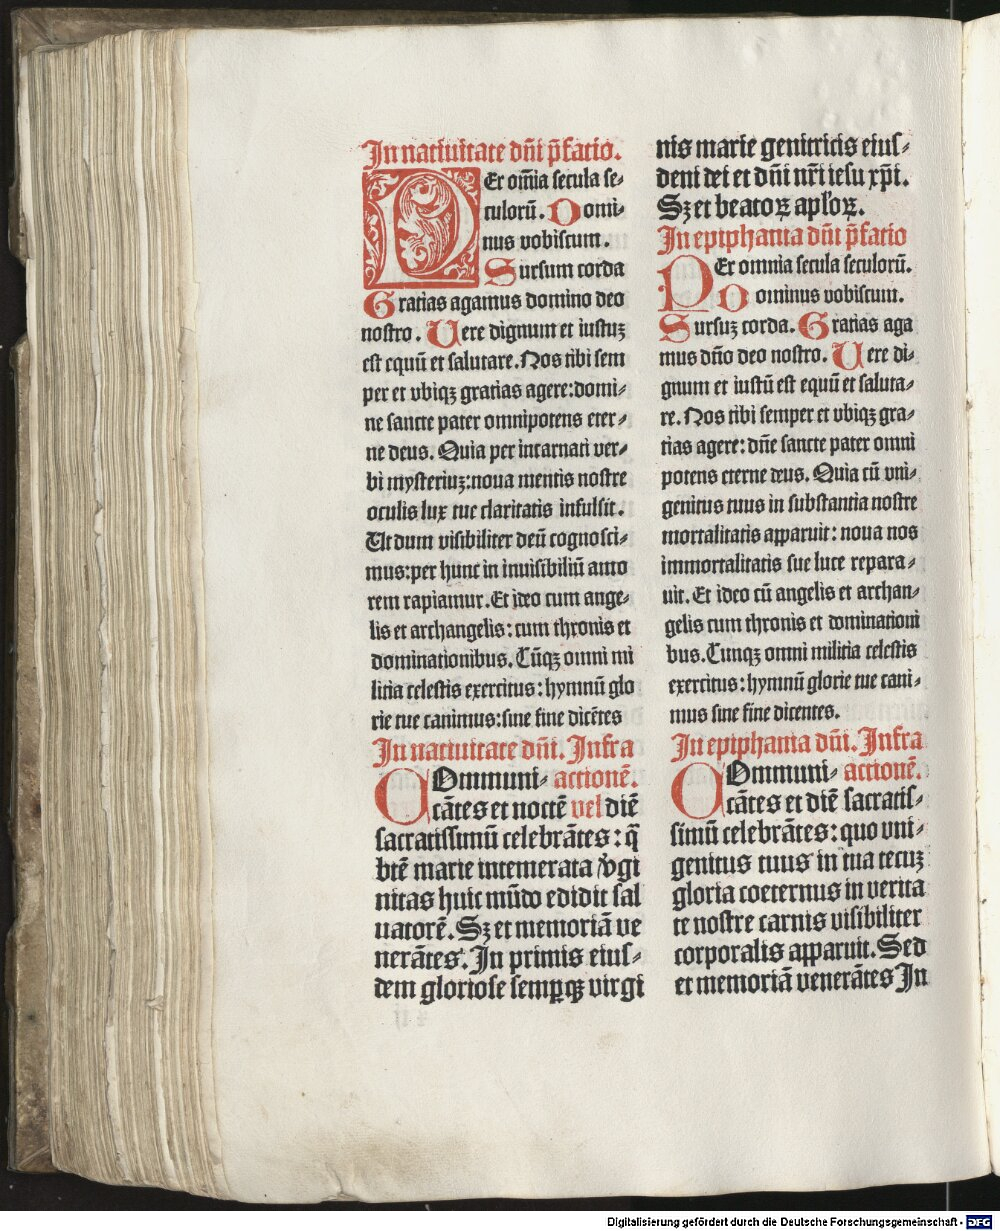 In natiuitate dn̄i p̄fatio.
PEr om̄ia secula se-
culorū. Domi-
nus vobiscum.
Sursum corda
Gratias agamus domino deo
nostro. Uere dignum et iustuꝫ
est equū et salutare. Nos tibi sem
per et vbiqꝫ gratias agere: domi-
ne sancte pater omnipotens eter-
ne deus. Quia per incarnati ver-
bi mysteriuꝫ: noua mentis nostre
oculis lux tue claritatis infulsit.
Ut dum visibiliter deū cognosci-
mus: per hunc in inuisibiliū amo
rem rapiamur. Et ideo cum ange-
lis et archangelis: cum thronis et
dominationibus. Cūqꝫ omni mi
litia celestis exercitus: hymnū glo
rie tue canimus: sine fine dicētes
In natiuitate dn̄i. Infra
COmmuni- actionē.
cātes et noctē vel diē
sacratissimū celebrātes: q̄
btē marie intemerata v̾gi
nitas huic mūdo edidit sal
uatorē. Sꝫ et memoriā ve
nerātes. In primis eius-
dem gloriose semꝑqꝫ virgi
nis marie genitricis eius-
dem dei et dn̄i nr̄i iesu xp̄i.
Sꝫ et beatoꝝ apl'oꝝ.
In epiphania dn̄i p̄fatio
PEr omnia secula seculorū.
Dominus vobiscum.
Sursuꝫ corda. Gratias aga
mus dn̄o deo nostro. Uere di-
gnum et iustū est equū et saluta-
re. Nos tibi semper et vbiqꝫ gra-
tias agere: dn̄e sancte pater omni
potens eterne deus. Quia cū vni-
genitus tuus in substantia nostre
mortalitatis apparuit: noua nos
immortalitatis sue luce repara-
uit. Et ideo cū angelis et archan-
gelis cum thronis et dominationi
bus. Cunqꝫ omni militia celestis
exercitus: hymnū glorie tue cani-
mus sine fine dicentes.
In epiphania dn̄i. Infra
COmmuni- actionē.
cātes et diē sacratis-
simū celebrātes: quo vni-
genitus tuus in tua tecuꝫ
gloria coeternus in verita
te nostre carnis visibiliter
corporalis apparuit. Sed
et memoriā venerātes In
Digitalisierung gefördert durch die Deutsche Forschungsgemeinschaft - DFG